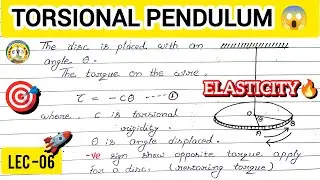 TORSIONAL PENDULUM
The disc is placed with an
angle θ.
The torque on the wire,
τ = -cθ ------①
where, c is torsional
rigidity.
θ is angle displaced.
-ve sign show opposite torque apply
for a disc. (restoring torque)
ELASTICITY
θ
A
B
LEC-06